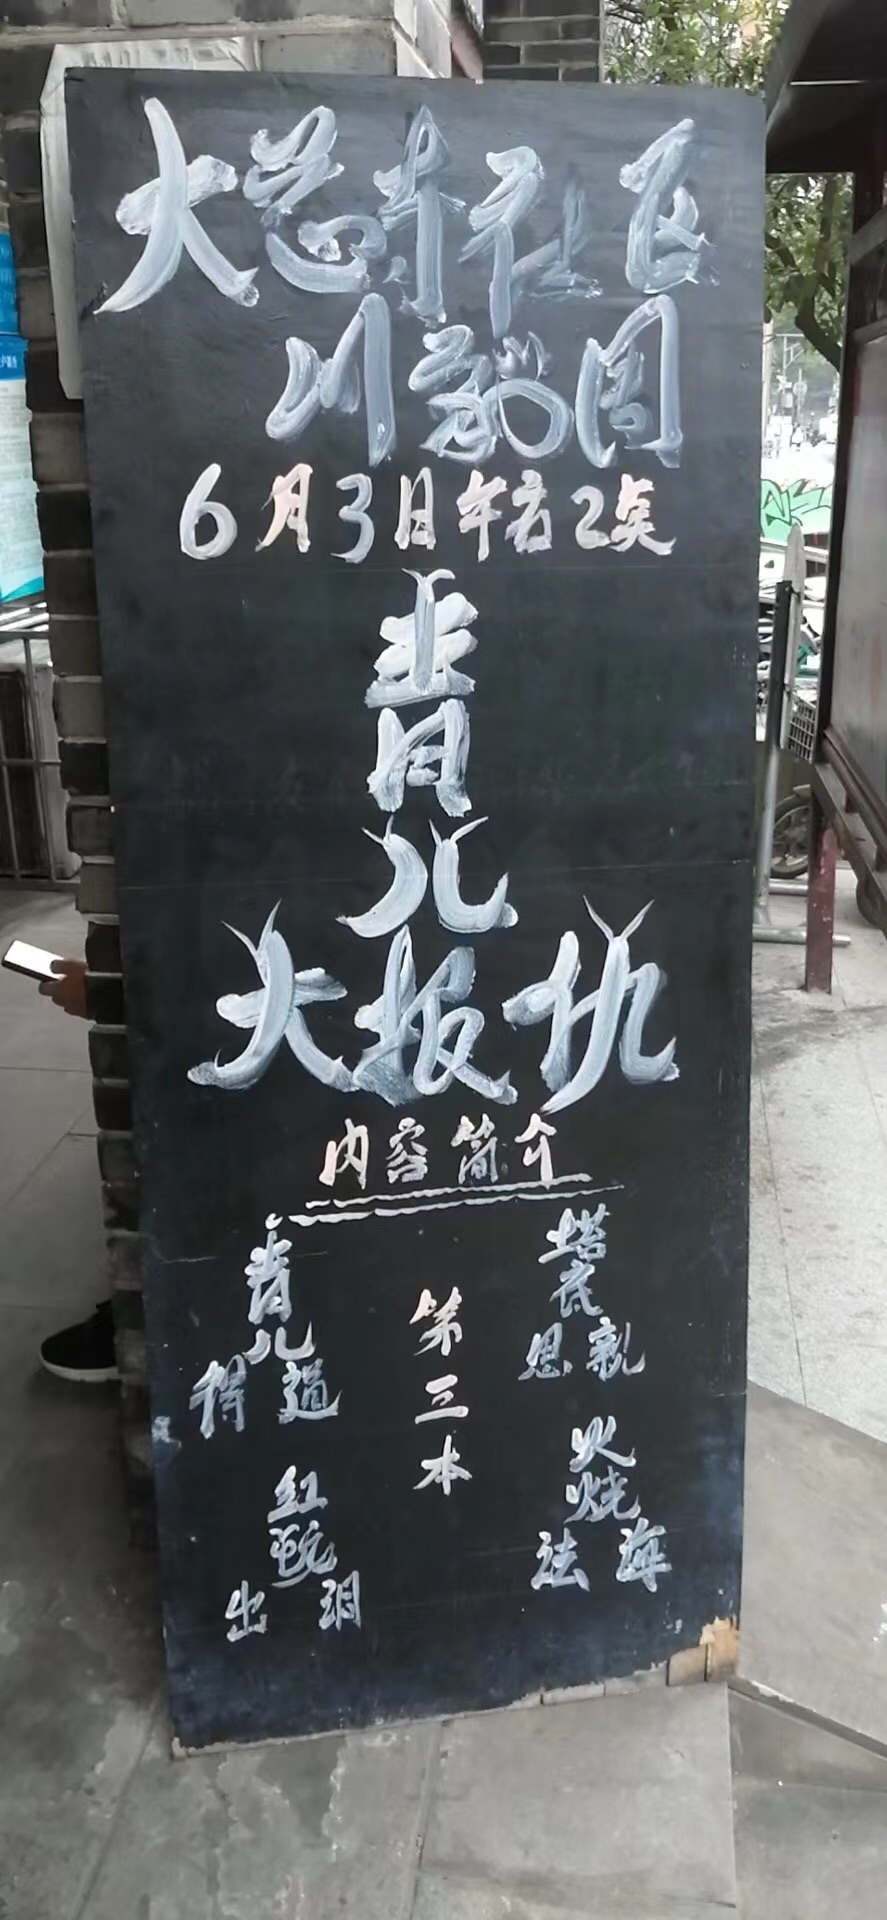 大慈寺社区
川剧团
6月3日午后2点
青儿
大报仇
内容简介
塔底思亲
火烧法海
第三本
青儿得道
红 出洞